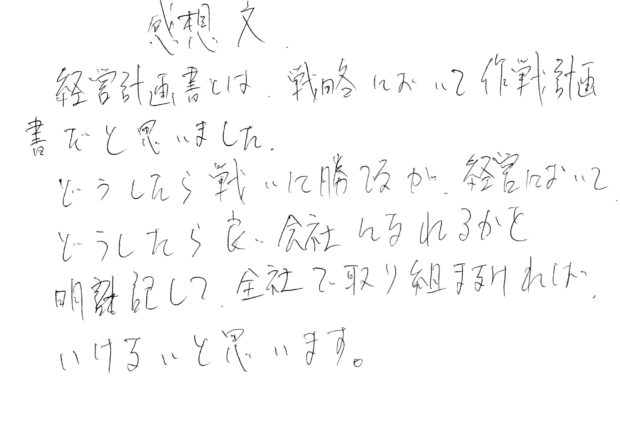 感想文
経営計画書とは、戦略において作戦計画
書だと思いました。
どうしたら戦いに勝てるか、経営において
どうしたら良い会社になれるかを
明記して、全社で取り組まなければ、
いけないと思います。